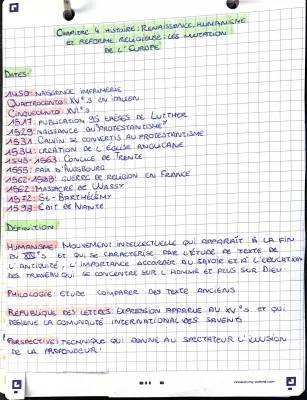 CHAPITRE 4 HISTOIRE: RENAISSANCE, HUMANISME
ET RÉFORME RELIGIEUSE: LES MUTATION
DE L'EUROPE
DATES:
1450: NAISSANCE IMPRIMERIE
QUATTROCENTO: XV°S EN ITALIEN
CINQUECENTO: XVI°S
1517: PUBLICATION 95 THÈSES DE LUTHER
1529: NAISSANCE DU "PROTESTANTISME"
1531: CALVIN SE CONVERTIS AU PROTESTANTISME
1534: CRÉATION DE L'ÉGLISE ANGLICANE
1545-1563: CONCILE DE TRENTE
1555: PAIX D'AUGSBOURG
1562-1598: GUERRE DE RELIGION EN FRANCE
1562: MASSACRE DE WASSY
1572: ST-BARTHÉLÉMY
1598: ÉDIT DE NANTE
DÉFINITION:
HUMANISME: MOUVEMENT INTELLECTUELLE QUI APPARAIT À LA FIN
DU S ET QUI SE CARACTÉRISE PAR L'ÉTUDE DE TEXTE DE
L'ANTIQUITÉ, L'IMPORTANCE ACCORDER AU SAVOIR ET À L'ÉDUCATION
DES TRAVEAU QUI SE CONCENTRE SUR L'HOMME ET PLUS SUR DIEU
PHILOLOGIE: ÉTUDE COMPARER DES TEXTE ANCIENS
RÉPUBLIQUE DES LETTRES: EXPRESSION APPARUE AU XV°S ET QUI
DÉSIGNE LA COMUNAUTÉ INTERNATIONAL DES SAVENTS
PERSPECTIVE: TECHNIQUE QUI DONNE AU SPECTATEUR L'ILLUSION
DE LA PROFONDEUR.